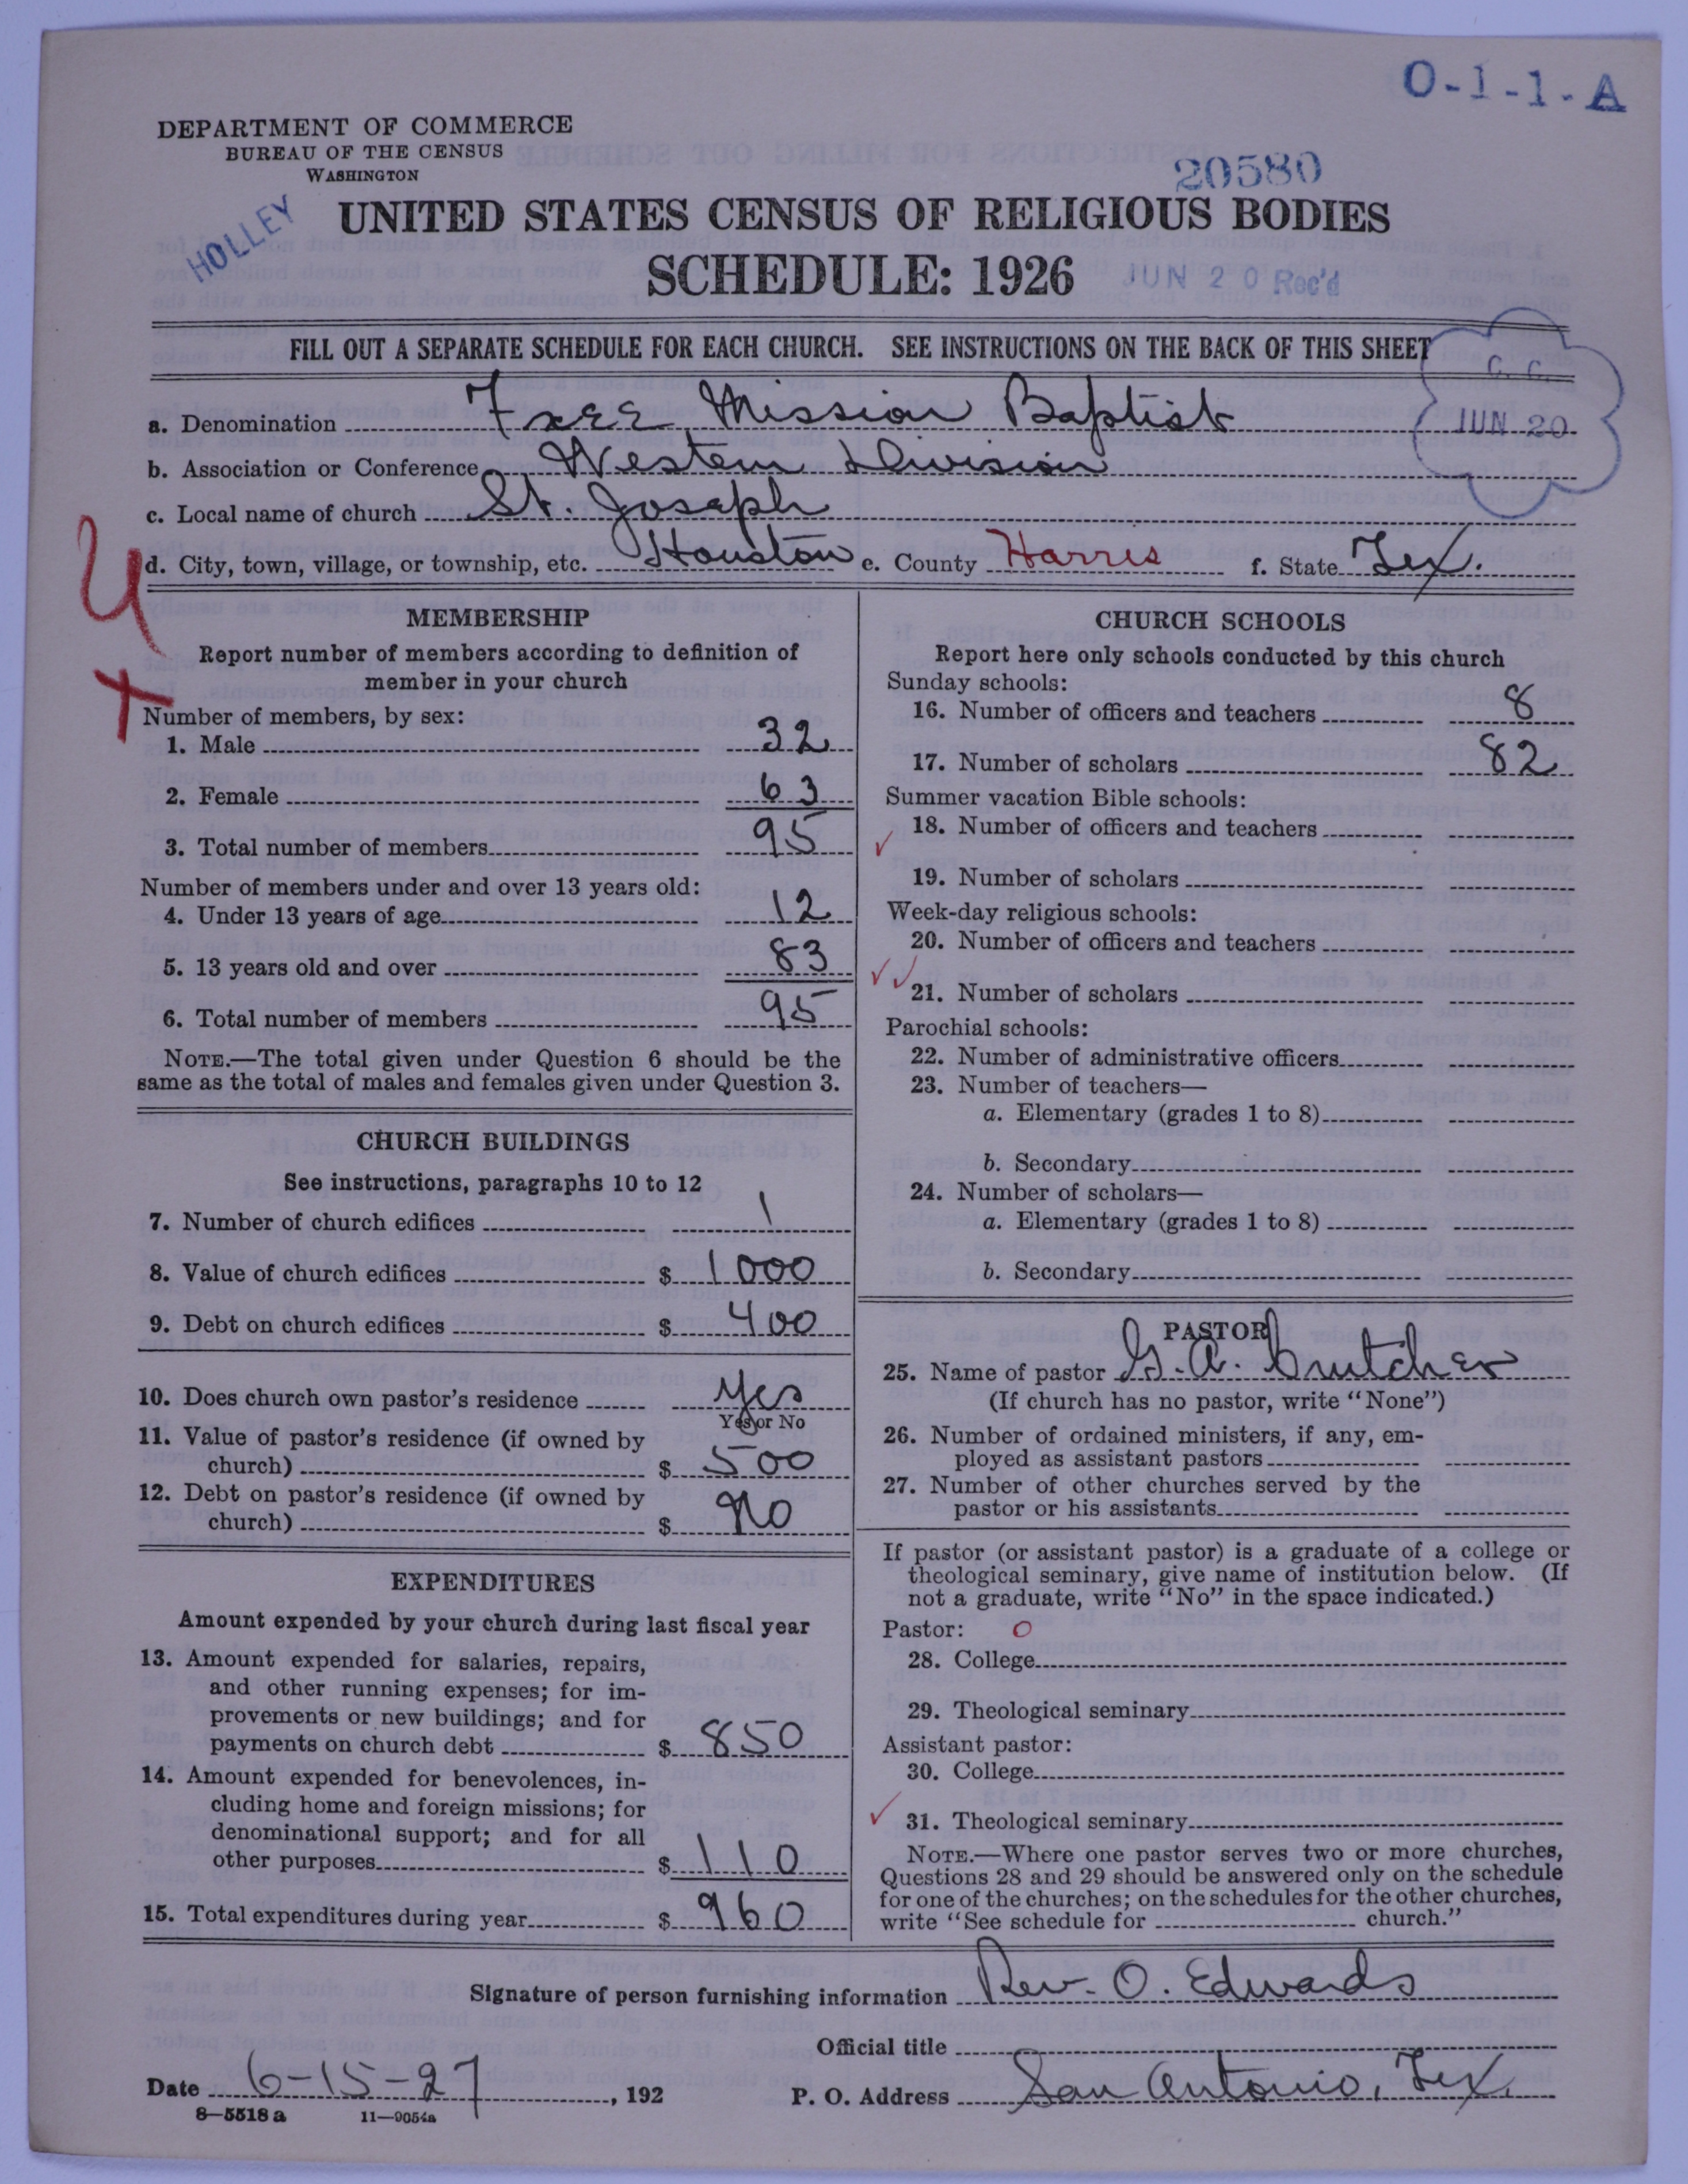 O-1-1-A
DEPARTMENT OF COMMERCE
BUREAU OF THE CENSUS
WASHINGTON
20580
HOLLEY
UNITED STATES CENSUS OF RELIGIOUS BODIES
SCHEDULE: 1926
JUN 20 Rec'd
FILL OUT A SEPARATE SCHEDULE FOR EACH CHURCH. SEE INSTRUCTIONS ON THE BACK OF THIS SHEET
C. C.
JUN 20
a. Denomination Free Mission Baptist
b. Association or Conference Western Division
c. Local name of church St. Joseph
d. City, town, village, or township, etc. Houston e. County Harris f. State Tex.
MEMBERSHIP
Report number of members according to definition of
member in your church
Number of members, by sex:
1. Male 32
2. Female 63
3. Total number of members 95
Number of members under and over 13 years old:
4. Under 13 years of age 12
5. 13 years old and over 83
6. Total number of members 95
NOTE.—The total given under Question 6 should be the
same as the total of males and females given under Question 3.
CHURCH BUILDINGS
See instructions, paragraphs 10 to 12
7. Number of church edifices 1
8. Value of church edifices $ 1000
9. Debt on church edifices $ 400
10. Does church own pastor's residence Yes
Yes or No
11. Value of pastor's residence (if owned by
church) $ 500
12. Debt on pastor's residence (if owned by
church) $ No
EXPENDITURES
Amount expended by your church during last fiscal year
13. Amount expended for salaries, repairs,
and other running expenses; for im-
provements or new buildings; and for
payments on church debt $ 850
14. Amount expended for benevolences, in-
cluding home and foreign missions; for
denominational support; and for all
other purposes $ 110
15. Total expenditures during year $ 960
CHURCH SCHOOLS
Report here only schools conducted by this church
Sunday schools:
16. Number of officers and teachers 8
17. Number of scholars 82
Summer vacation Bible schools:
18. Number of officers and teachers
19. Number of scholars
Week-day religious schools:
20. Number of officers and teachers
21. Number of scholars
Parochial schools:
22. Number of administrative officers
23. Number of teachers—
a. Elementary (grades 1 to 8)
b. Secondary
24. Number of scholars—
a. Elementary (grades 1 to 8)
b. Secondary
PASTOR
25. Name of pastor G. A. Crutcher
(If church has no pastor, write "None")
26. Number of ordained ministers, if any, em-
ployed as assistant pastors
27. Number of other churches served by the
pastor or his assistants
If pastor (or assistant pastor) is a graduate of a college or
theological seminary, give name of institution below. (If
not a graduate, write "No" in the space indicated.)
Pastor: 0
28. College
29. Theological seminary
Assistant pastor:
30. College
31. Theological seminary
NOTE.—Where one pastor serves two or more churches,
Questions 28 and 29 should be answered only on the schedule
for one of the churches; on the schedules for the other churches,
write "See schedule for church."
Signature of person furnishing information Rev. O. Edwards
Official title
Date 6-15-27, 192 P. O. Address San Antonio, Tex.
8—5518 a 11—9054a